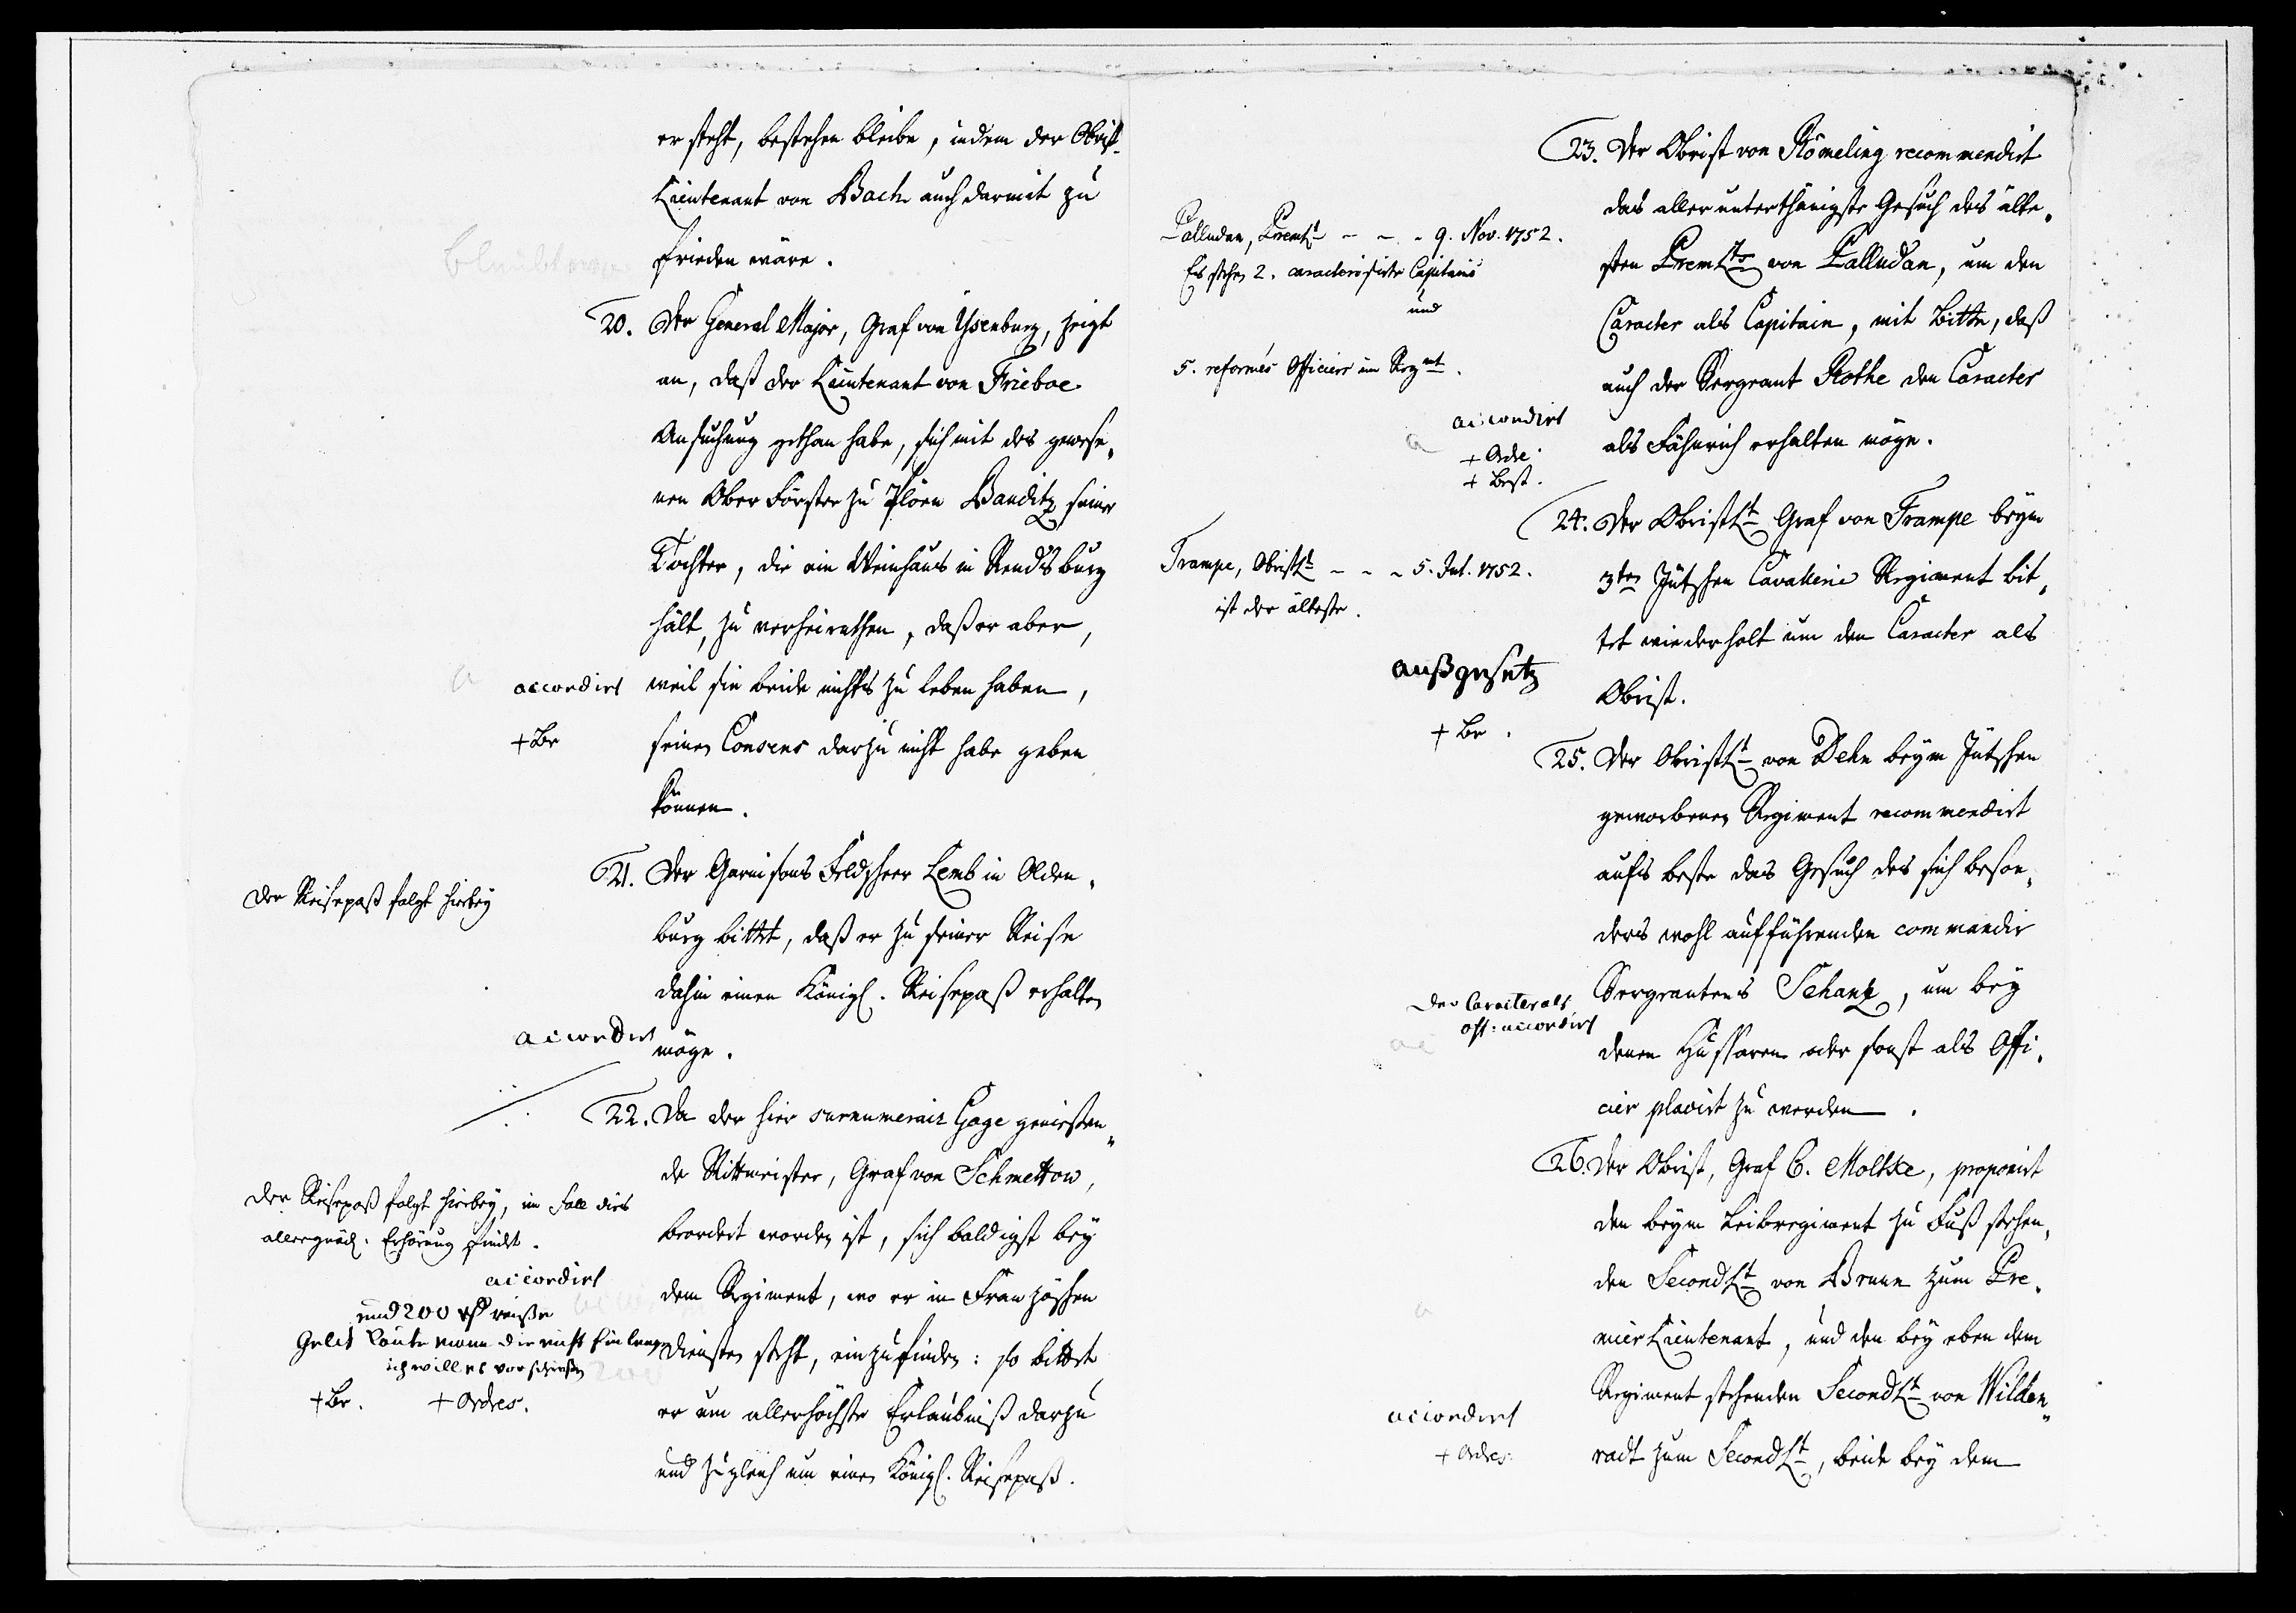 er steht, bestehen bleibe, indem der Obrist-
Lieutenant von Bach auch darmit zu
frieden wäre.
20. Der General Major, Graf von Ysenburg, zeigt
an, daß der Lieutenant von Frieboe
Ansuchung gethan habe, sich mit des gewese„
nen Ober Förster zu Plöen Banditz seiner
Tochter, die ein Weinhaus in Rendsburg
hält, zu verheirathen, daß er aber,
accordirt
weil sie beide nichts zu leben haben,
+ Br
seinen Consens darzu nicht habe geben
können.
21. Der Garnisons Feldscheer Lemb in Olden„
Der Reisepaß folgt hierbey
burg bittet, daß er zu seiner Reise
dahin einen Königl. Reisepaß erhalten
accordirt
möge.
22. Da der hier surnumerair Gage geniessen„
de Rittmeister, Graf von Schmettow,
Der Reisepaß folgt hierbey, im Fall dies
allergnäd. Erhörung findet.
beordert worden ist, sich baldigst bey
accordirt
und 200 rthl reiße
Geldt
ich will es vorschießen
+ Br. + Ordres.
dem Regiment, wo er in Französchen
Diensten steht, einzufinden: so bittet
er um allerhöchste Erlaubniß darzu
und zugleich um einen Königl. Reisepaß.
23. Der Obrist von Römeling recommendirt
das allerunterthänigste Gesuch des älte„
Palludan, Premlt - - - 9. Nov. 1752.
Es stehen 2. caracterisirte Capitains
und
5. reformés Officiers im Regmt.
sten PremLts von Palludan, um den
Caracter als Capitain, mit Bitte, daß
auch der Sergeant Rothe den Caracter
accordirt
+ Ordre
+ Best.
als Fähnrich erhalten möge.
24. Der ObristLt Graf von Trampe beym
Trampe, ObristLt - - - 5. Jul. 1752.
ist der älteste.
3ten Jütschen Cavallerie Regiment bit„
tet wiederholt um den Caracter als
außgesetz
Obrist.
+ Br.
25. Der ObristLt von Dehn beym Jütschen
geworbenen Regiment recommendirt
aufs beste das Gesuch des sich beson„
ders wohl aufführenden commandir
Der Caracter als
off: accordirt
Sergeantens Schanz, um bey
denen Hussaren oder sonst als Offi„
cier placirt zu werden.
26. Der Obrist, Graf C. Moltke, proponirt
den beym Leibregiment zu Fuß stehen„
den SecondLt von Brunn zum Pre„
mier Lieutenant, und den bey eben dem
Regiment stehenden SecondLt von Wilden„
accordirt
+ Ordres.
radt zum SecondLt, beide bey dem